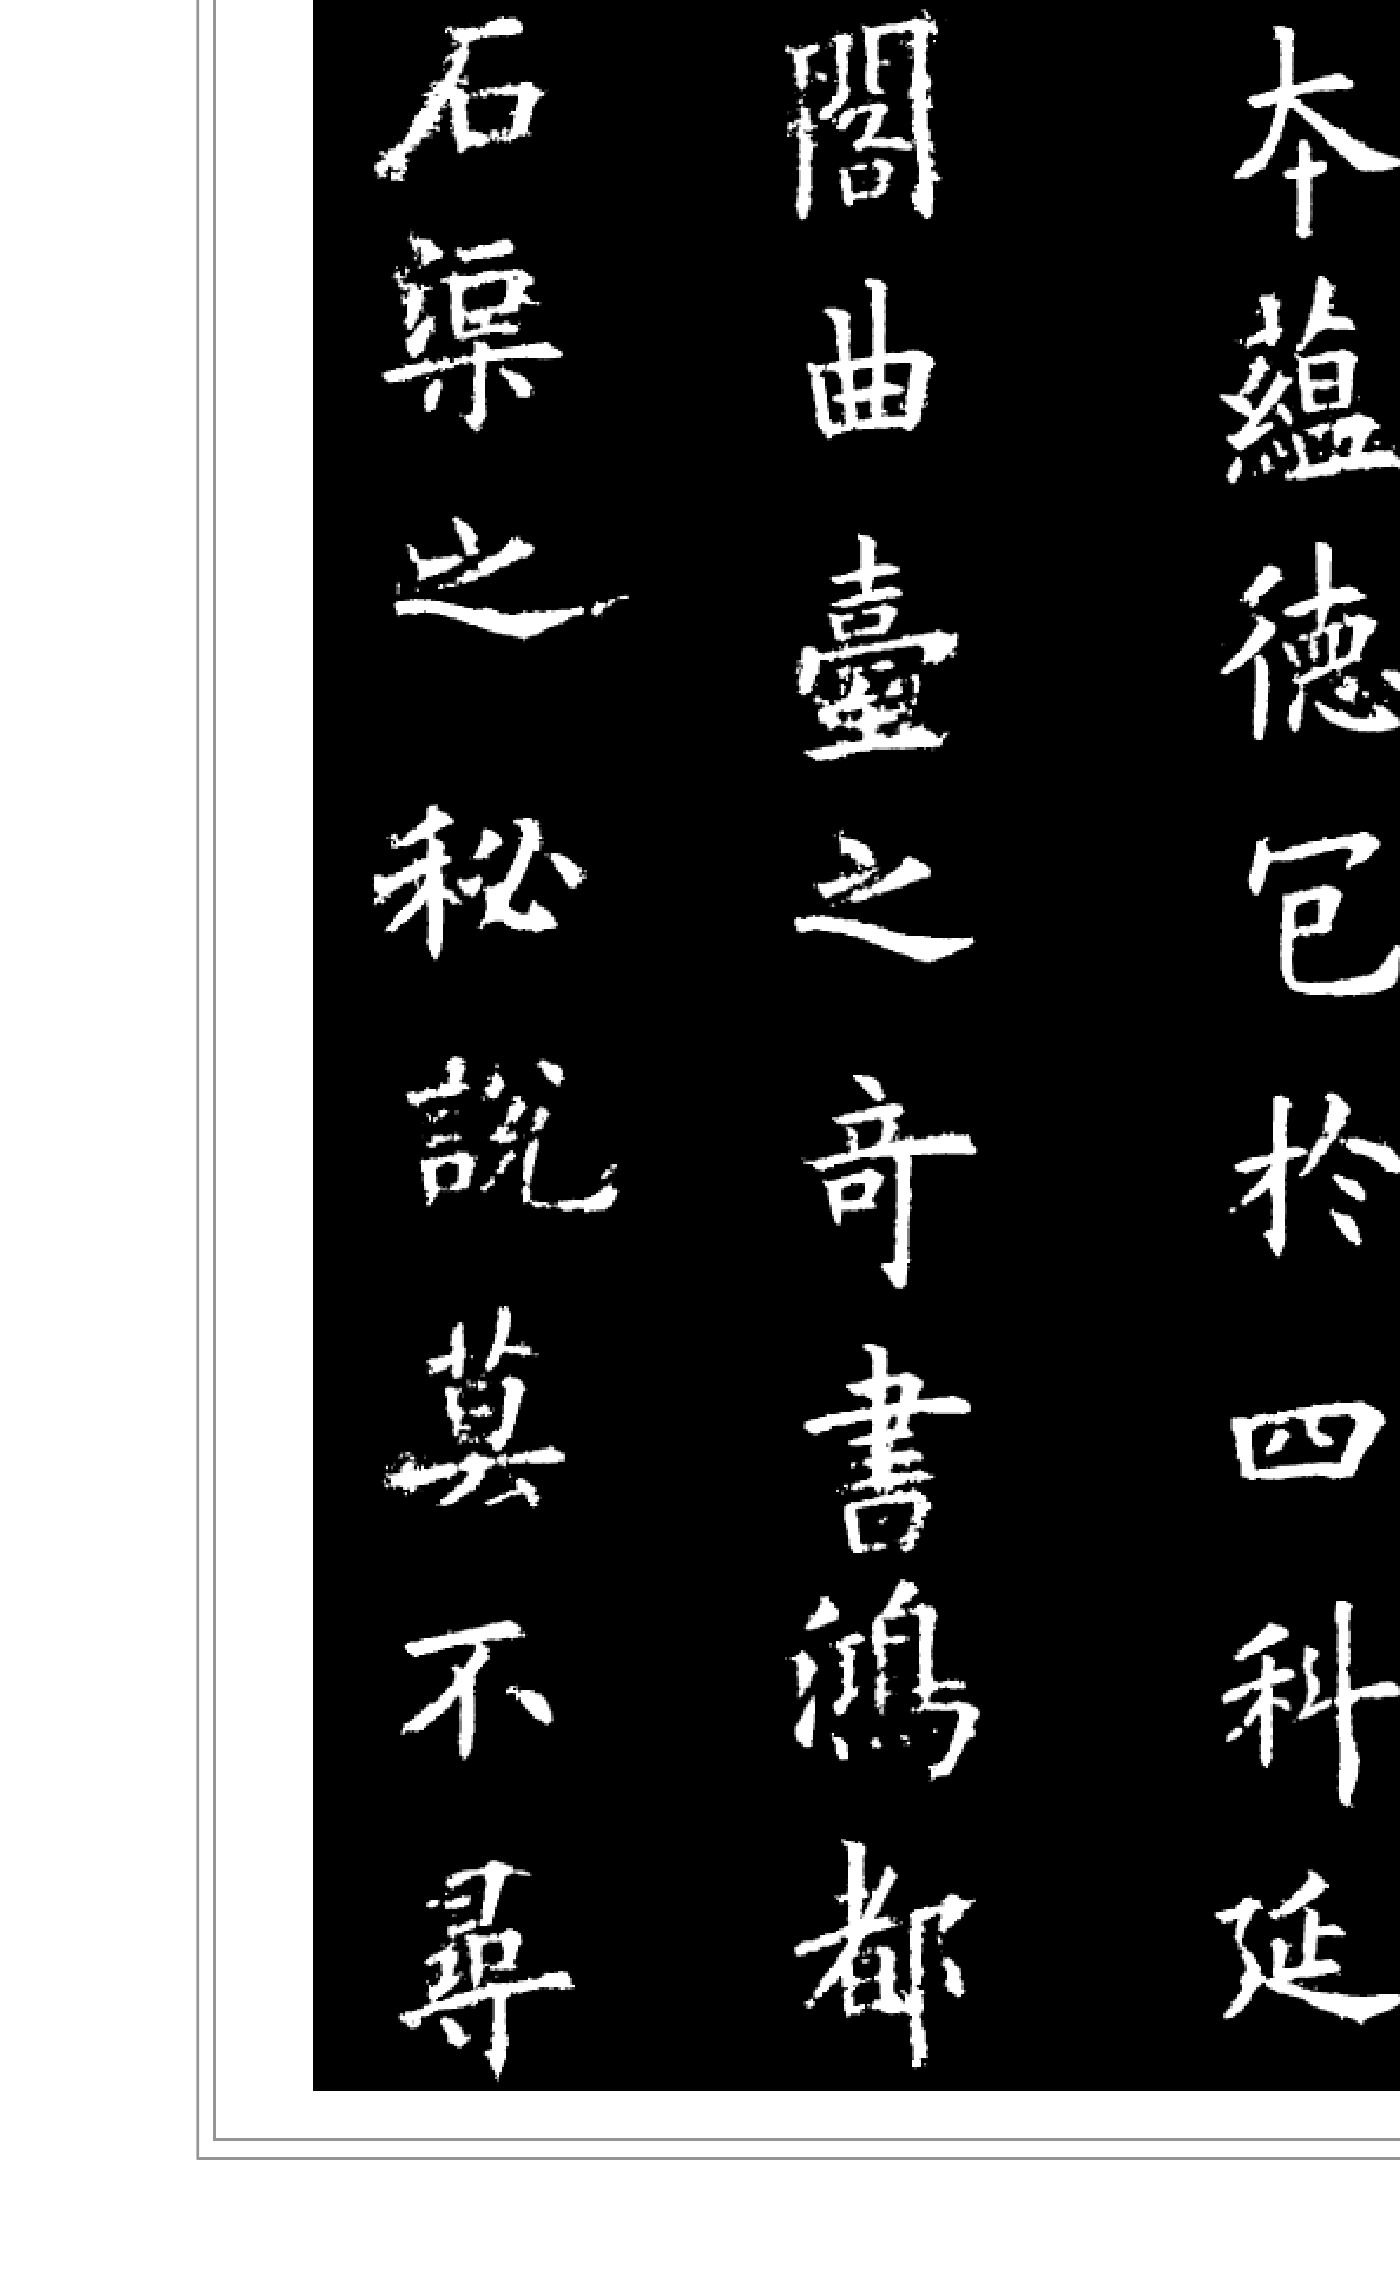 本蘊德包於四科延
閣曲臺之奇書鴻都
石渠之秘說莫不尋